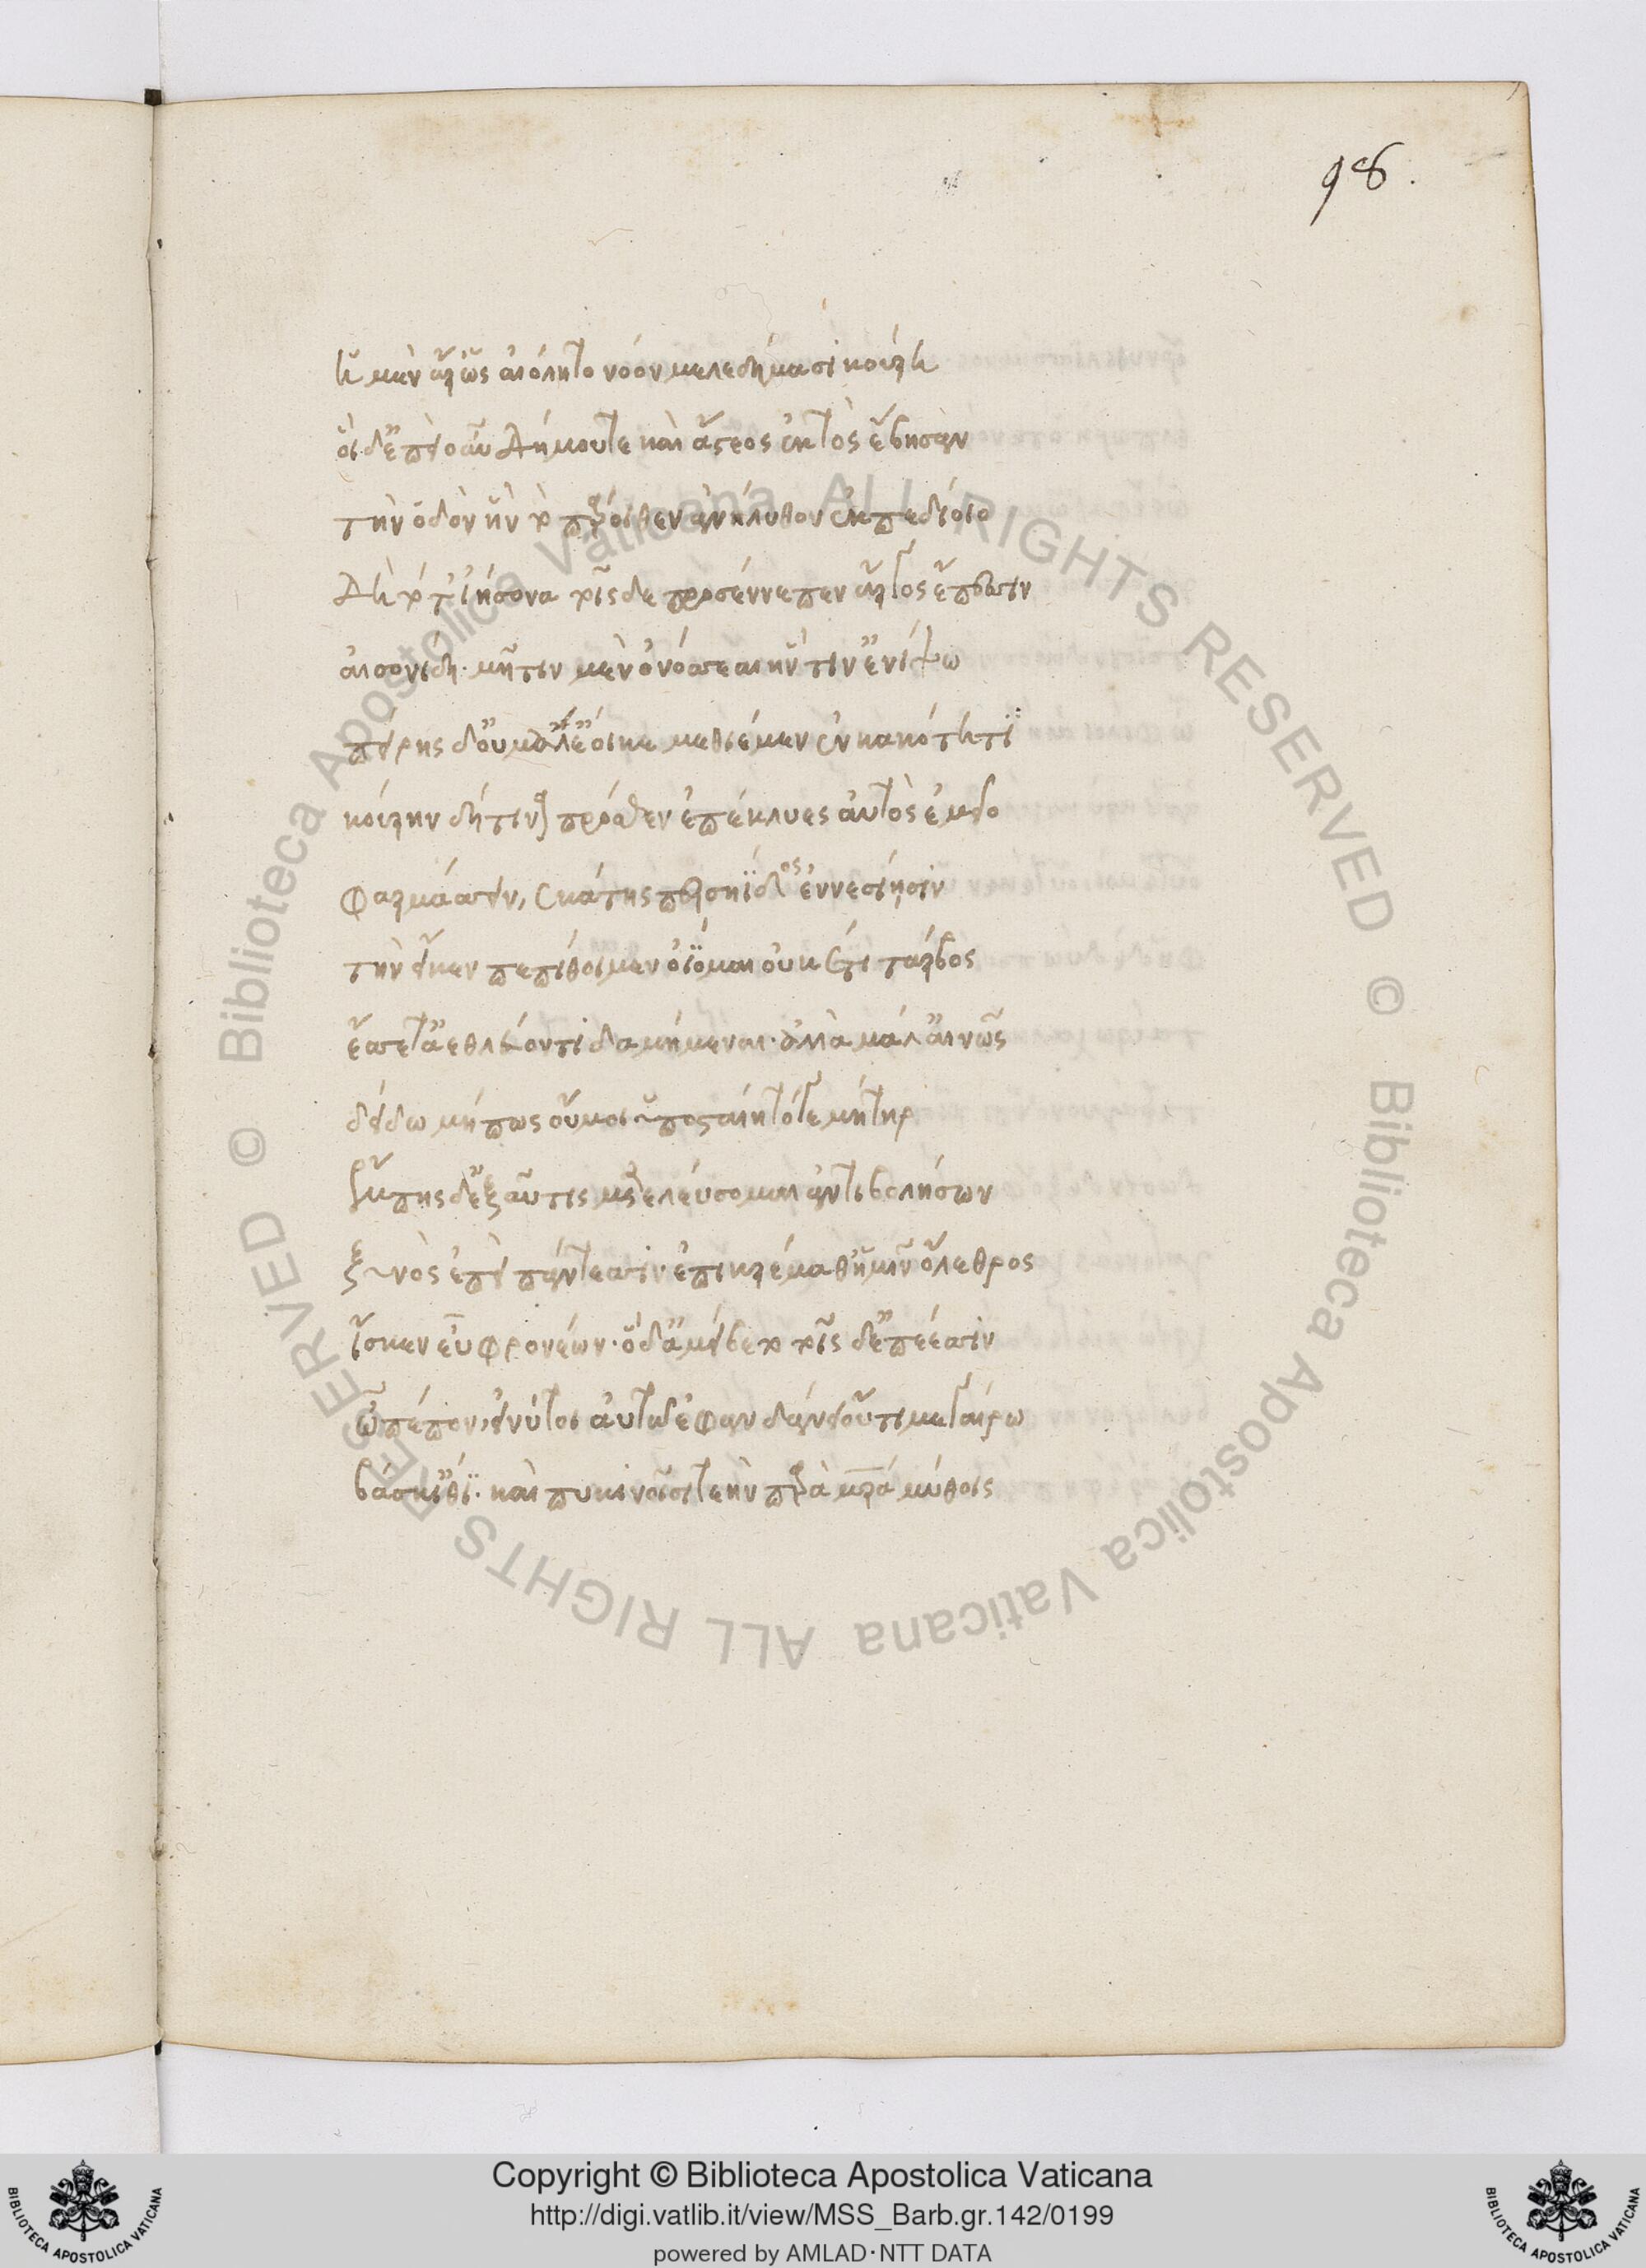 98.
ἡ μὲν ἄρ ὣς αἰόλητο νόον μελεδήμασι κούρη
οἱ δ' ἐπεὶ οὖν δήμου τε καὶ ἄστεος ἐκτὸς ἔβησαν
τὴν ὁδὸν ἣν τὸ πάροιθεν ἀνήλυθον ἐκ πεδίοιο
δὴ τότ' ἰήσονα τοῖσδε προσέννεπεν ἄργος ἔπεσσιν
αἰσονίδη· μῆτιν μὲν ὀνόσσεαι ἥν τιν' ἐνίψω
πείρης δ' οὐ μάλ' ἔοικε μεθιέμεν ἐν κακότητι
κούρην δή τινα πρόσθεν ἐπέκλυες αὐτὸς ἐμεῖο
φαρμάσσειν, ἑκάτης περσηΐδος ἐννεσίησιν
τὴν εἴ κεν πεπίθοιμεν ὀΐομαι οὐκ ἔτι τάρβος
ἔσσετ' ἀεθλεύοντι δαμήμεναι· ἀλλὰ μάλ' αἰνῶς
δείδω μή πως οὔ μοι ὑποσταίη τόγε μήτηρ
ἔμπης δ' ἐξαῦτις μετελεύσομαι ἀντιβολήσων
ξυνὸς ἐπεὶ πάντεσσιν ἐπικρέμαθ' ἧμιν ὄλεθρος
ἴσκεν ἐϋφρονέων· ὁ δ' ἀμείβετο τοῖσδ' ἐπέεσσιν
ὦ πέπον, εἴ νύ τοι αὐτῶ ἐφανδάνει οὔτι μεγαίρω
βάσκ' ἴθι· καὶ πυκινοῖσι τεὴν παρὰ μητέρα μύθοις
Copyright © Biblioteca Apostolica Vaticana
http://digi.vatlib.it/view/MSS_Barb.gr.142/0199
powered by AMLAD·NTT DATA